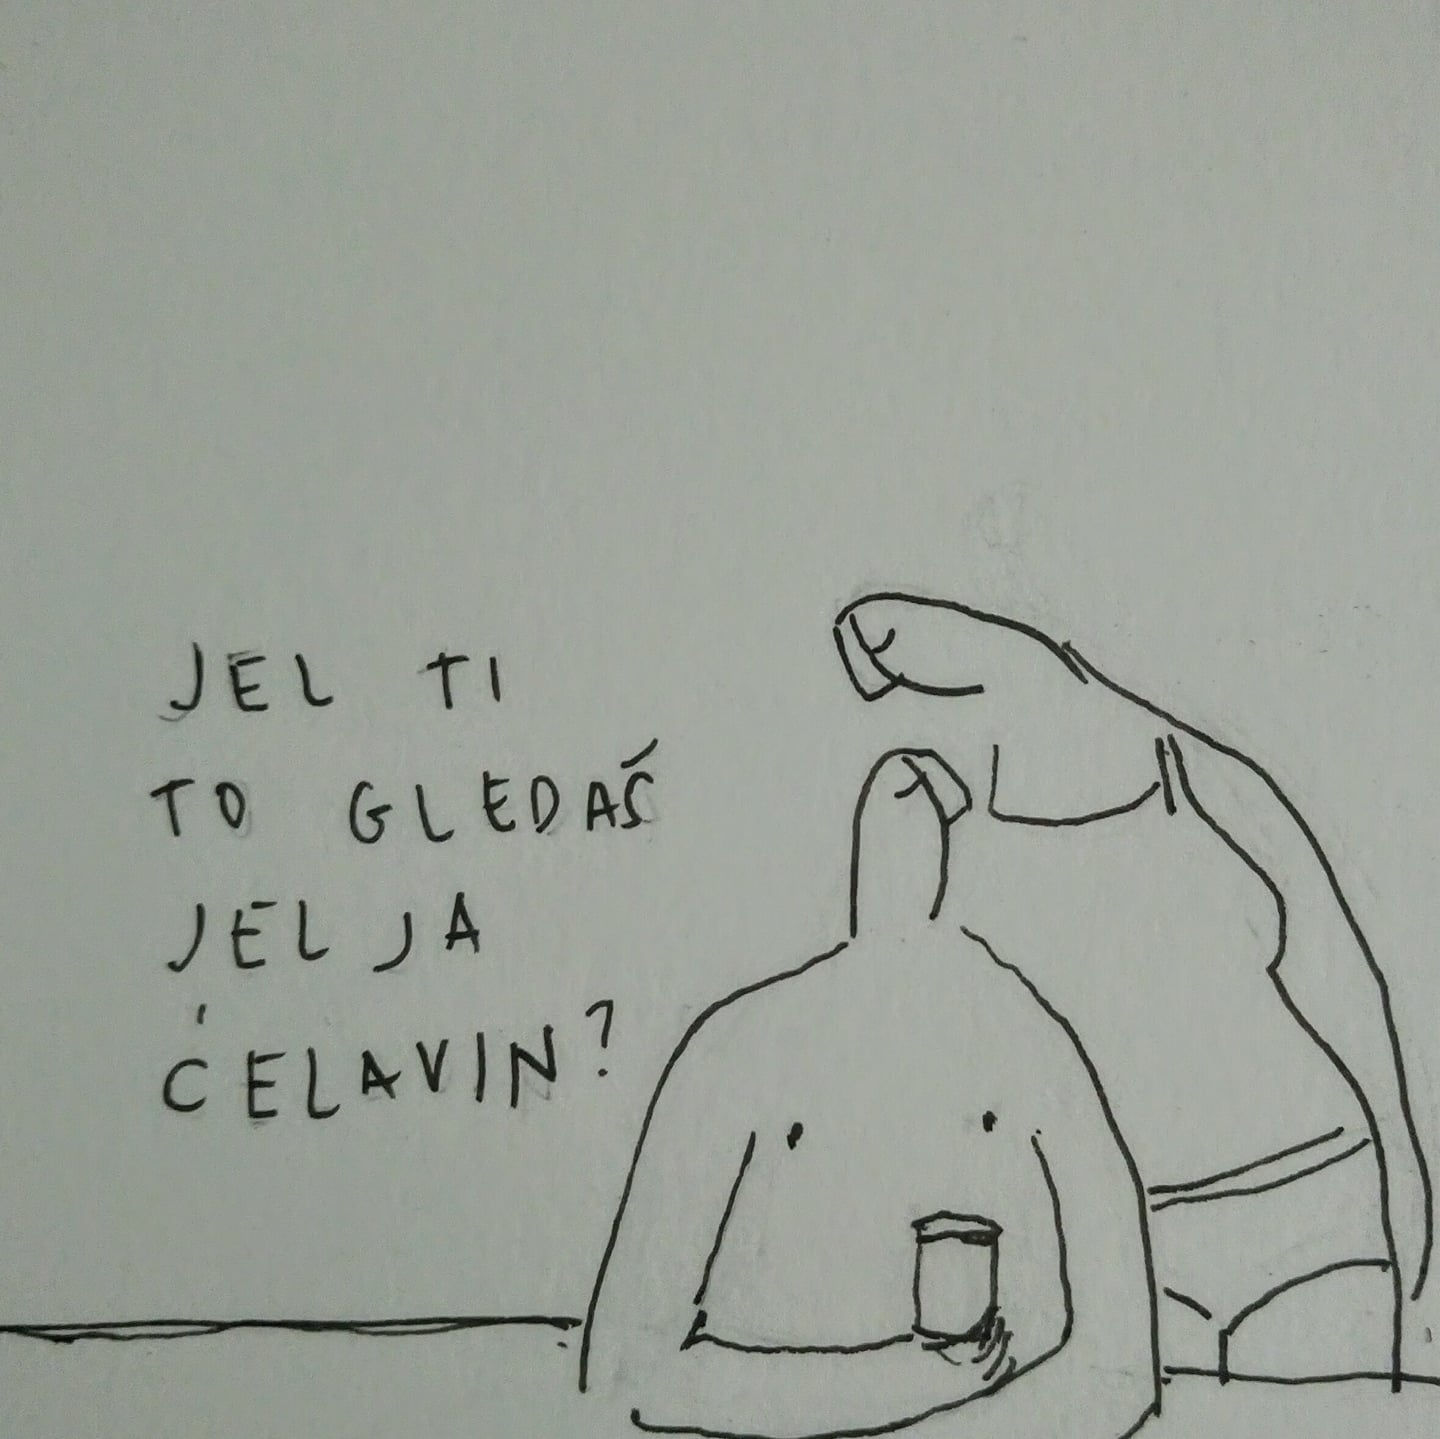 JEL TI
TO GLEDAŠ
JEL JA
ĆELAVIN?